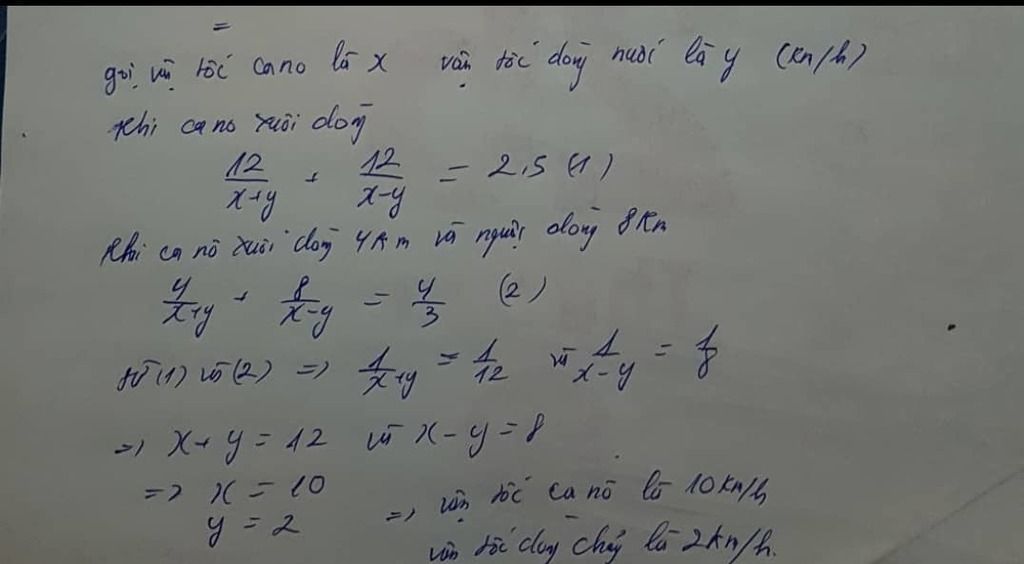 =
gọi vận tốc cano là x vận tốc dòng nước là y (km/h)
Khi cano xuôi dòng
12/(x+y) + 12/(x-y) = 2,5 (1)
Khi ca nô xuôi dòng 4km và ngược dòng 8km
4/(x+y) + 8/(x-y) = 4/3 (2)
từ (1) và (2) => 1/(x+y) = 1/12 và 1/(x-y) = 1/8
=> x+y = 12 và x-y = 8
=> x = 10
y = 2
=> vận tốc ca nô là 10km/h
vận tốc dòng chảy là 2km/h.